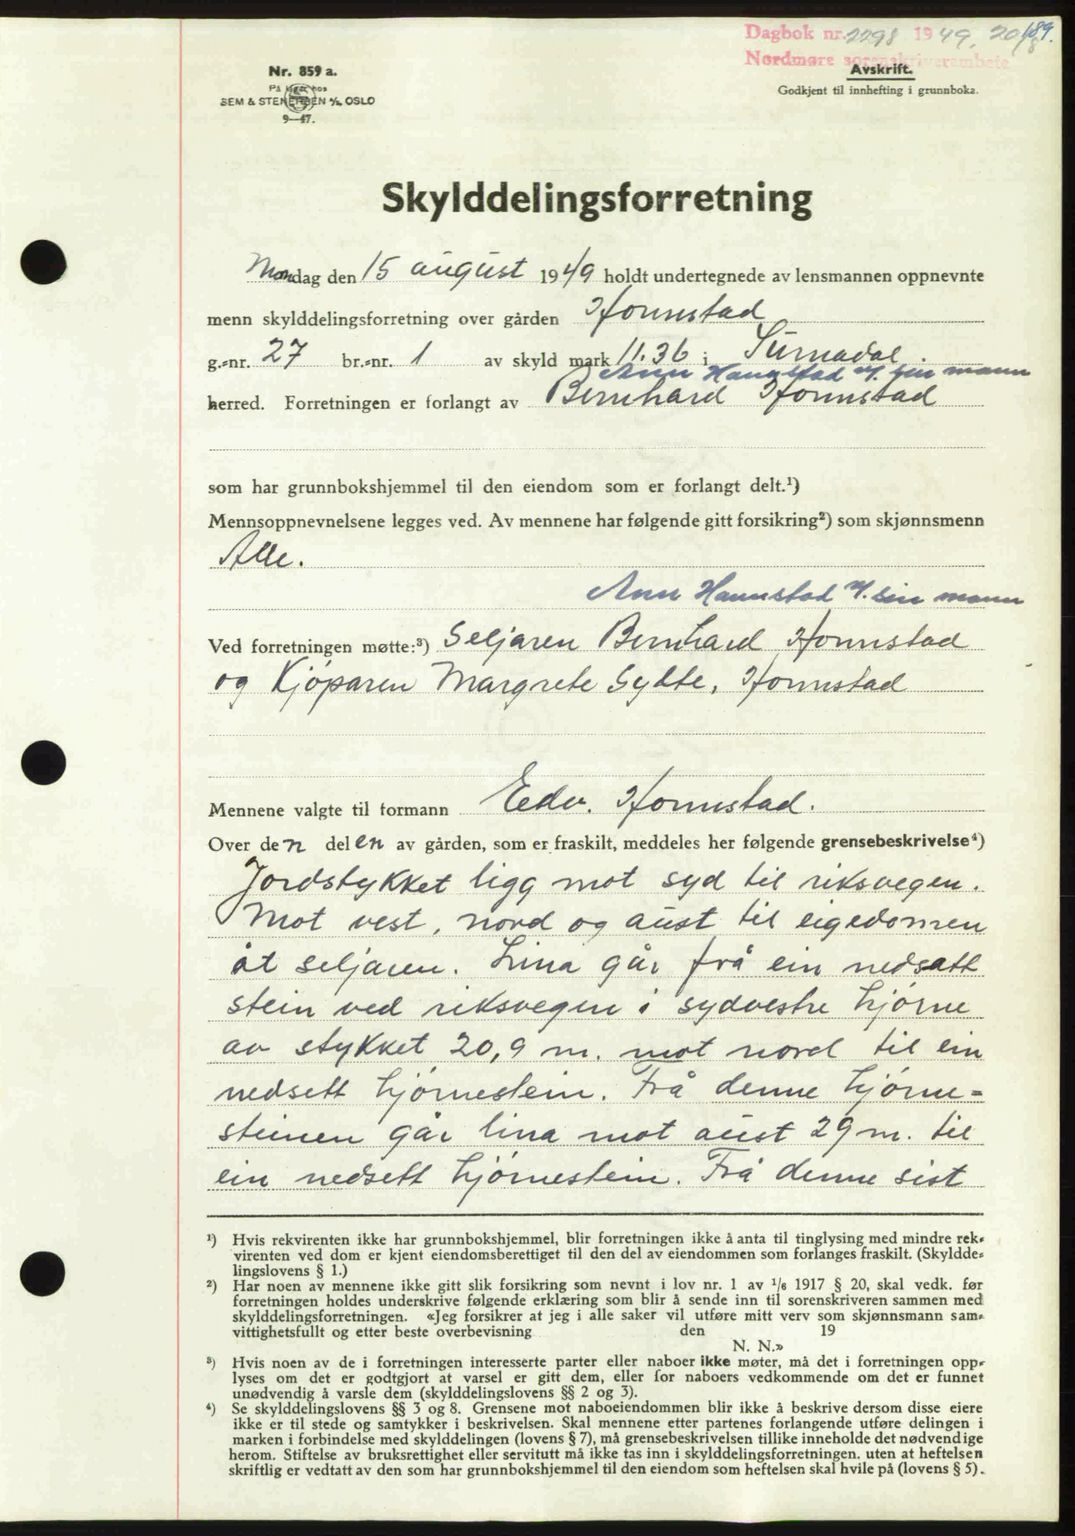 Dagbok nr. 2298 1949, 20/8 189.
Nordmøre sorenskriverembete
Nr. 859 a.
På lager hos
SEM & STENERSEN A/S, OSLO
9—47.
Avskrift.
Godkjent til innhefting i grunnboka.
Skylddelingsforretning
Mandag den 15 august 1949 holdt undertegnede av lensmannen oppnevnte
menn skylddelingsforretning over gården Honnstad
g.-nr. 27 br.-nr. 1 av skyld mark 11.36 i Surnadal.
Ann Honnstad m/ sin mann
herred. Forretningen er forlangt av Bernhard Honnstad
som har grunnbokshjemmel til den eiendom som er forlangt delt.¹)
Mennsoppnevnelsene legges ved. Av mennene har følgende gitt forsikring²) som skjønnsmenn
Alle.
Ann Honnstad m/. sin mann
Ved forretningen møtte:³) Seljaren Bernhard Honnstad
og Kjøparen Margrete Sylte, Honnstad
Mennene valgte til formann Edv. Honnstad.
Over den delen av gården, som er fraskilt, meddeles her følgende grensebeskrivelse⁴)
Jordstykket ligg mot syd til riksvegen.
Mot vest, nord og aust til eigedomen
åt seljaren. Lina går frå ein nedsatt
stein ved riksvegen i sydvestre hjørne
av stykket 20,9 m. mot nord til ein
nedsett hjørnestein. Frå denne hjørne-
steinen går lina mot aust 29 m. til
ein nedsett hjørnestein. Frå denne sist
¹) Hvis rekvirenten ikke har grunnbokshjemmel, blir forretningen ikke å anta til tinglysing med mindre rek-
virenten ved dom er kjent eiendomsberettiget til den del av eiendommen som forlanges fraskilt. (Skyldde-
lingslovens § 1.)
²) Har noen av mennene ikke gitt slik forsikring som nevnt i lov nr. 1 av 1/6 1917 § 20, skal vedk. før
forretningen holdes underskrive følgende erklæring som blir å sende inn til sorenskriveren sammen med
skylddelingsforretningen. «Jeg forsikrer at jeg i alle saker vil utføre mitt verv som skjønnsmann sam-
vittighetsfullt og etter beste overbevisning den 19
N. N.»
³) Hvis noen av de i forretningen interesserte parter eller naboer ikke møter, må det i forretningen opp-
lyses om det er godtgjort at varsel er gitt dem, eller for naboers vedkommende om det er funnet
unødvendig å varsle dem (skylddelingslovens §§ 2 og 3).
⁴) Se skylddelingslovens §§ 3 og 8. Grensene mot naboeiendommen blir ikke å beskrive dersom disse eiere
ikke er til stede og samtykker i beskrivelsen. Skal mennene etter partenes forlangende utføre delingen i
marken i forbindelse med skylddelingen (lovens § 7), må grensebeskrivelsen tillike inneholde det nødvendige
herom. Stiftelse av bruksrettighet eller servitutt må ikke tas inn i skylddelingsforretningen, uten at heftelsen
skriftlig er vedtatt av den som har grunnbokshjemmel til den eiendom som heftelsen skal hvile på (lovens § 5).